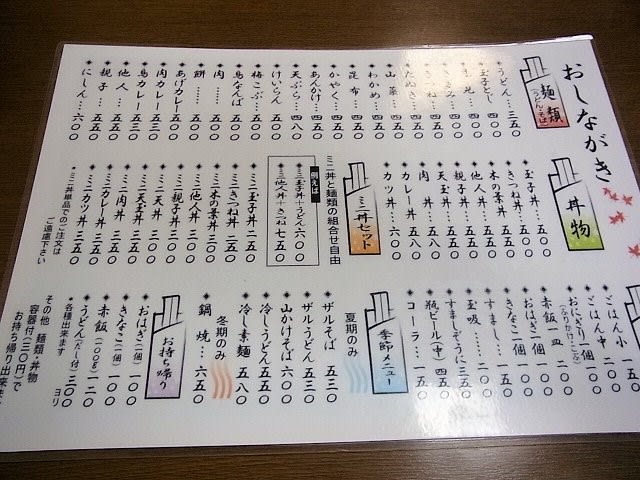 おしながき
麺類
(うどん・そば)
うどん…三五〇
玉子とじ…四五〇
きざみ…四五〇
きつね…四五〇
たぬき…五〇〇
わかめ…四五〇
山菜…五〇〇
昆布…四五〇
かやく…五五〇
あんかけ…四五〇
天ぷら…四八〇
けいらん…五〇〇
梅こぶ…五〇〇
鳥なんば…五五〇
肉……五五〇
餅……五〇〇
あげカレー…五〇〇
肉カレー…五三〇
鳥カレー…五三〇
他人…五五〇
親子…五五〇
にしん…六〇〇
丼物
玉子丼…五〇〇
きつね丼…五〇〇
木の葉丼…五五〇
他人丼…五五〇
親子丼…五五〇
天玉丼…五五〇
肉丼…五八〇
カレー丼…五八〇
カツ丼…六〇〇
ミニ丼セット
ミニ丼と麺類の組合せ自由
例えば
ミニ玉子丼+うどん六〇〇
ミニ他人丼+きつね七五〇
ミニ玉子丼 二五〇
ミニきつね丼 二五〇
ミニ木の葉丼 三〇〇
ミニ他人丼 三〇〇
ミニ親子丼 三〇〇
ミニ天丼 三〇〇
ミニ天玉丼 三五〇
ミニ肉丼 三五〇
ミニカレー丼 三五〇
ミニカツ丼 三五〇
・ミニ丼単品でのご注文は
ご遠慮下さい
ごはん小 一五〇
ごはん中 二〇〇
おにぎり一個 一〇〇
赤飯一皿 二〇〇
おはぎ一個 一〇〇
きなこ一個 一〇〇
すまし…一五〇
玉吸…一五〇
すましぞうに三五〇
瓶ビール(中)四五〇
コーラ…一五〇
季節メニュー
夏期のみ
ザルそば 五三〇
ザルうどん 五三〇
山かけそば 六〇〇
冷しうどん 五五〇
冷し素麺 五五〇
冬期のみ
鍋焼…六五〇
お持ち帰り
おはぎ(一個)一〇〇
きなこ(一個)一〇〇
赤飯(一〇〇g)一二〇
うどん(だし付)三〇〇
・各種出来ます ヨリ
その他 麺類・丼物
容器付(三〇円)で
お持ち帰り出来ま